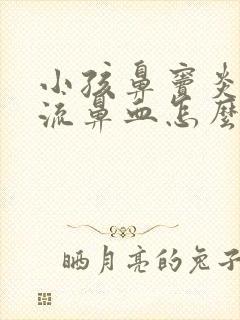 小孩鼻窦炎
流鼻血怎麽
晒月亮的兔子